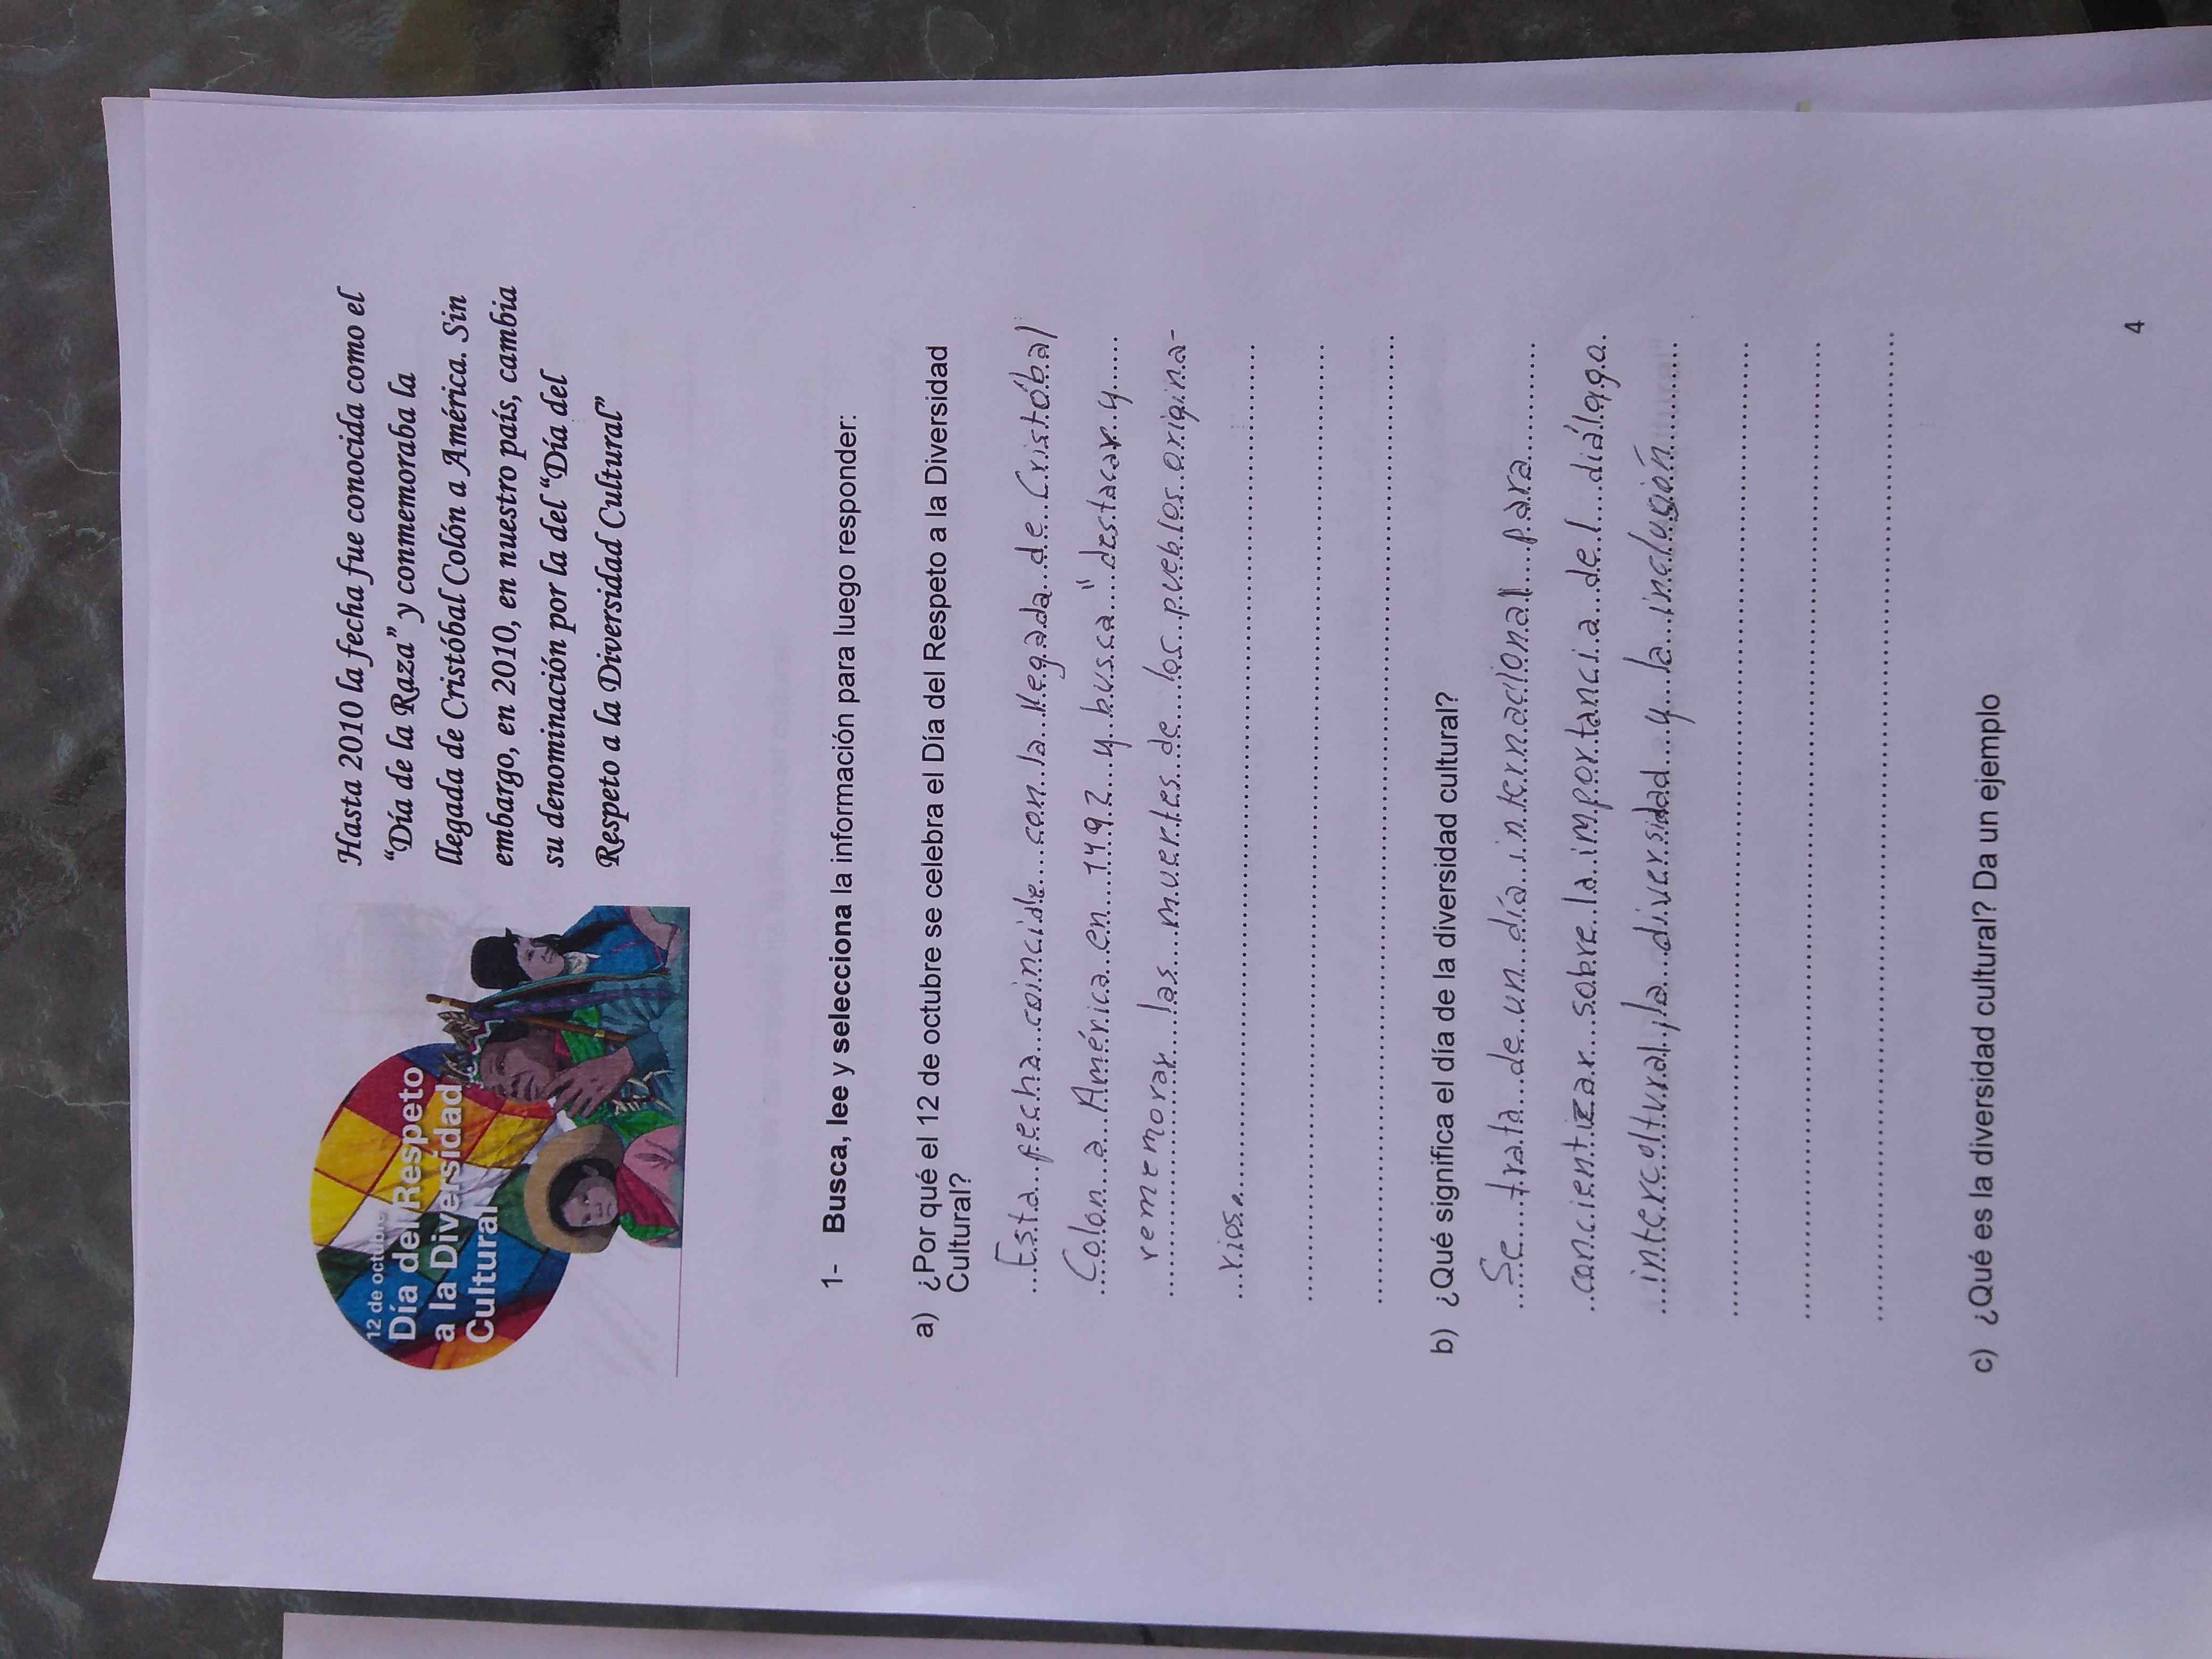 12 de octubre
Día del Respeto
a la Diversidad
Cultural
Hasta 2010 la fecha fue conocida como el
“Día de la Raza” y conmemoraba la
llegada de Cristóbal Colón a América. Sin
embargo, en 2010, en nuestro país, cambia
su denominación por la del “Día del
Respeto a la Diversidad Cultural”
1- Busca, lee y selecciona la información para luego responder:
a) ¿Por qué el 12 de octubre se celebra el Día del Respeto a la Diversidad
Cultural?
Esta fecha coincide con la llegada de Cristóbal
Colon a América en 1492 y busca "destacar y
rememorar las muertes de los pueblos origina-
rios.
b) ¿Qué significa el día de la diversidad cultural?
Se trata de un día internacional para
concientizar sobre la importancia del diálogo
intercultural, la diversidad y la inclusión
c) ¿Qué es la diversidad cultural? Da un ejemplo
4